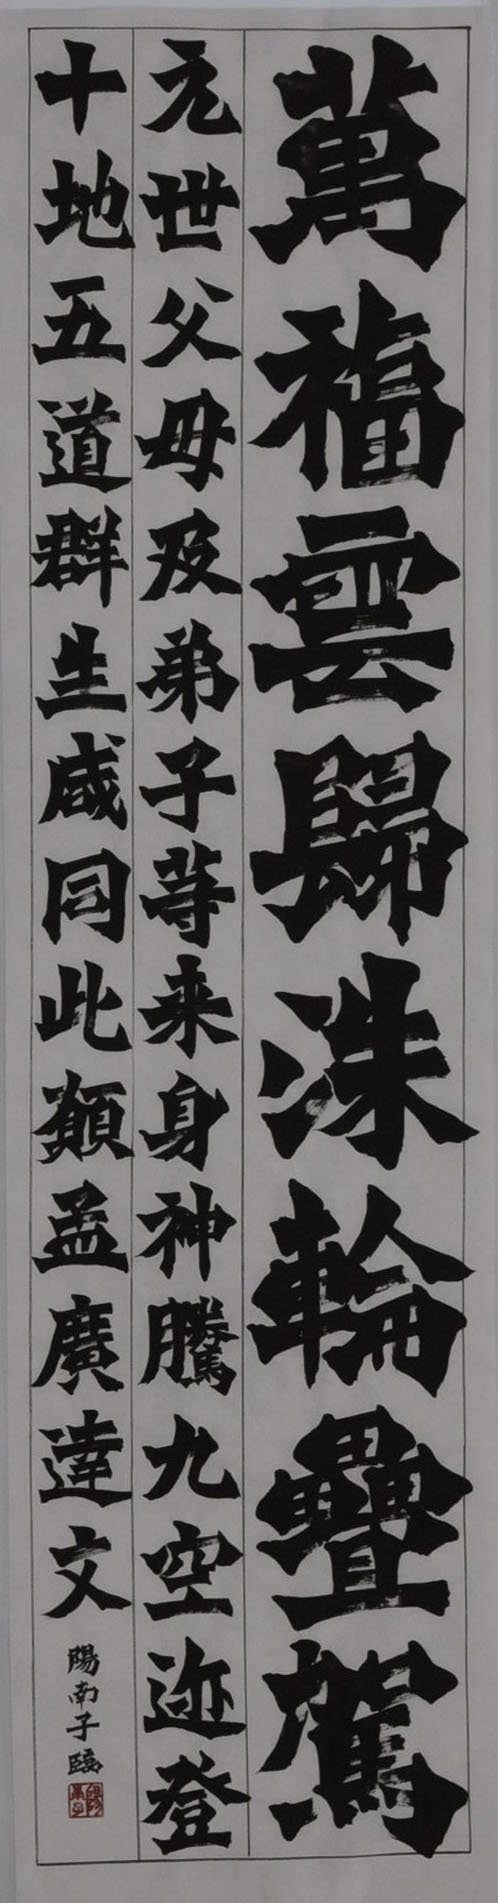 萬福雲歸洙輪疊駕
元世父母及弟子等来身神騰九空迹登
十地五道群生咸同此願孟廣達文
陽南子臨